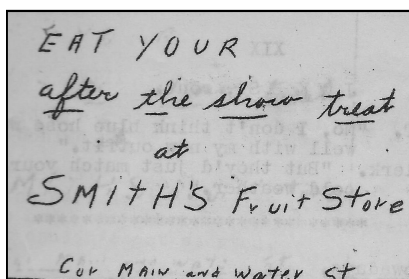 EAT YOUR
after the show treat
at
SMITH'S Fruit Store
Cor MAIN and WATER ST